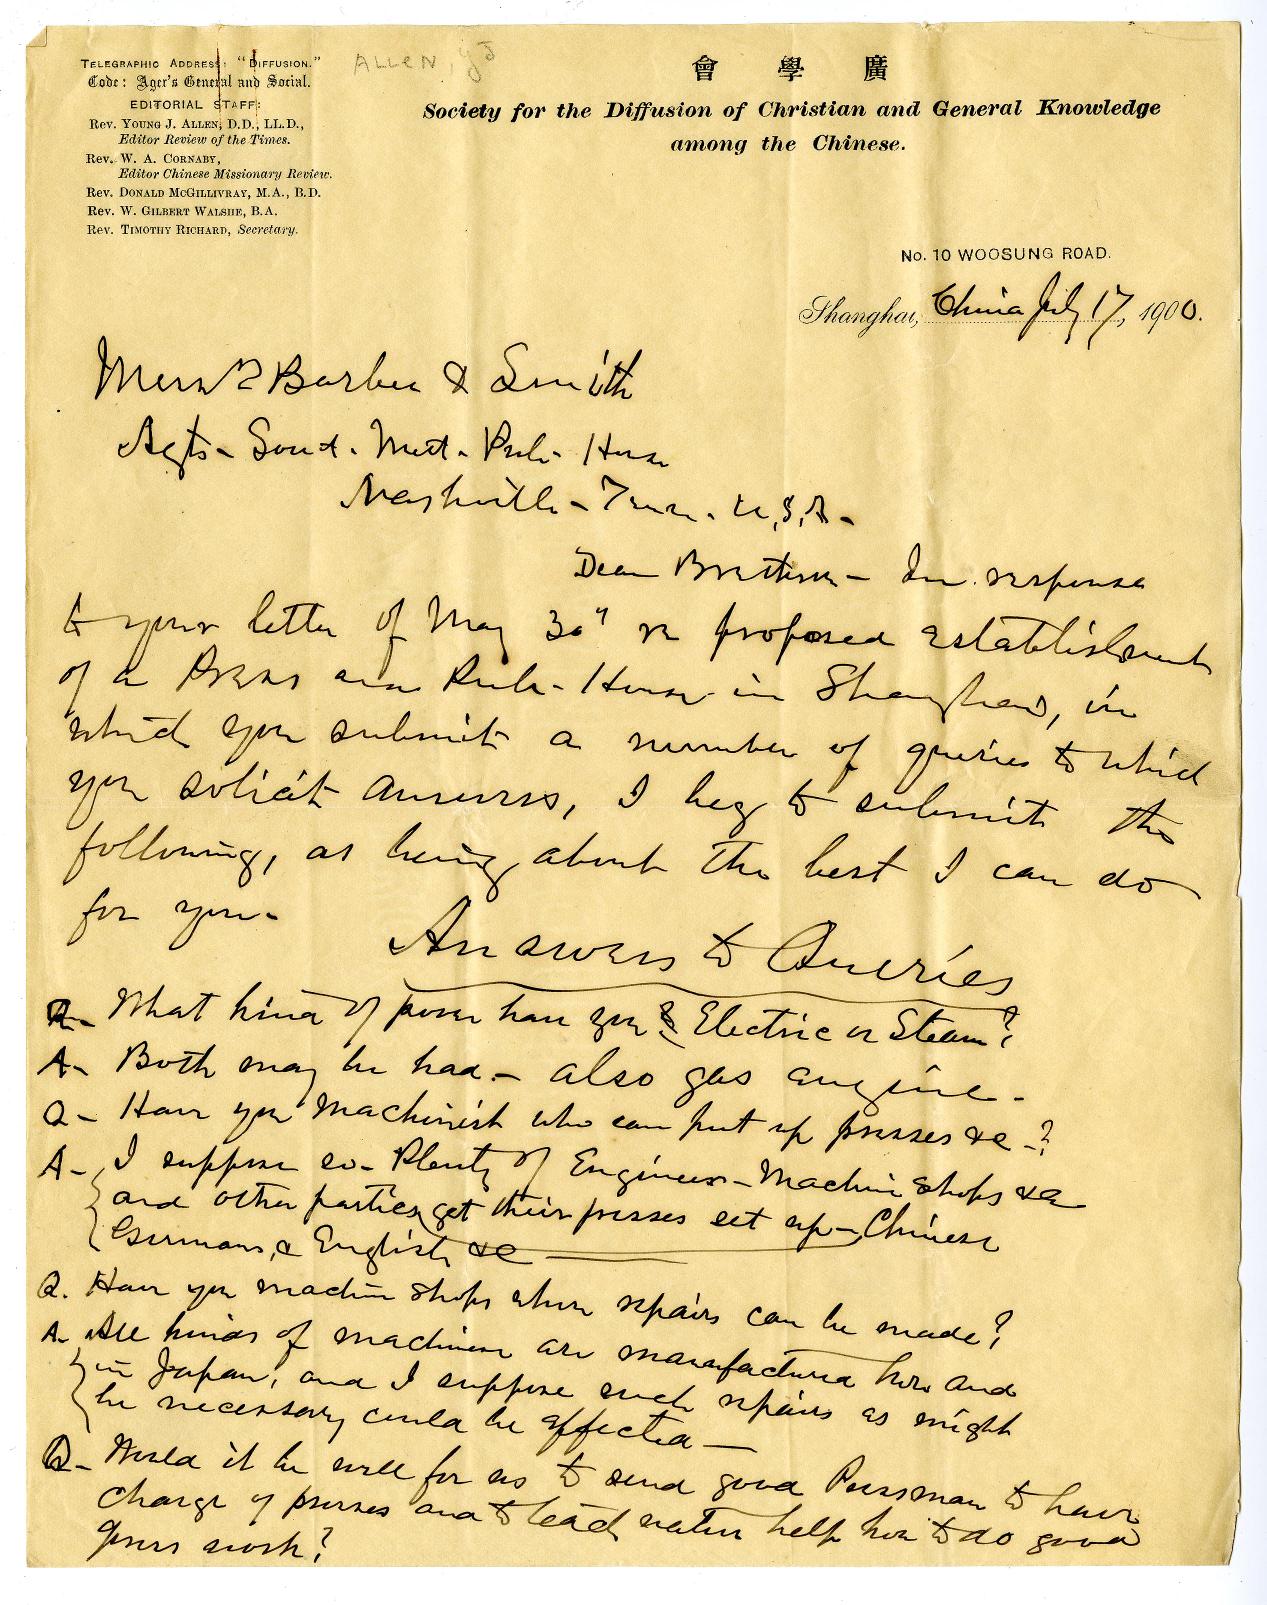 TELEGRAPHIC ADDRESS: "DIFFUSION."
Code: Ager's General and Social.
EDITORIAL STAFF:
Rev. YOUNG J. ALLEN, D.D., LL.D.,
Editor Review of the Times.
Rev. W. A. CORNABY,
Editor Chinese Missionary Review.
Rev. DONALD McGILLIVRAY, M.A., B.D.
Rev. W. GILBERT WALSHE, B.A.
Rev. TIMOTHY RICHARD, Secretary.
ALLEN, YJ
會 學 廣
Society for the Diffusion of Christian and General Knowledge
among the Chinese.
No. 10 WOOSUNG ROAD.
Shanghai, China July 17, 1900.
Messrs Barbee & Smith
Agts- South. Meth- Pub- House
Nashville- Tenn. U,S,A-
Dear Brethren- In response
to your letter of May 30" re proposed establishment
of a Press and Pub- House in Shanghai, in
which you submit a number of queries to which
you solicit answers, I beg to submit the
following, as being about the best I can do
for you-
Answers to Queries
Q- What kind of power have you? Electric or Steam?
A- Both may be had- also gas engine-
Q- Have you Machinist who can put up presses &c-?
A- I suppose so- Plenty of Engineers- Machine Shops &c
and other parties get their presses set up- Chinese
Germans, & English, &c
Q. Have you machine shops where repairs can be made?
A- All kinds of machinery are manufactured here and
in Japan, and I suppose such repairs as might
be necessary could be effected-
Q- Would it be well for us to send good Pressman to have
charge of presses and to teach native help how to do good
press work?